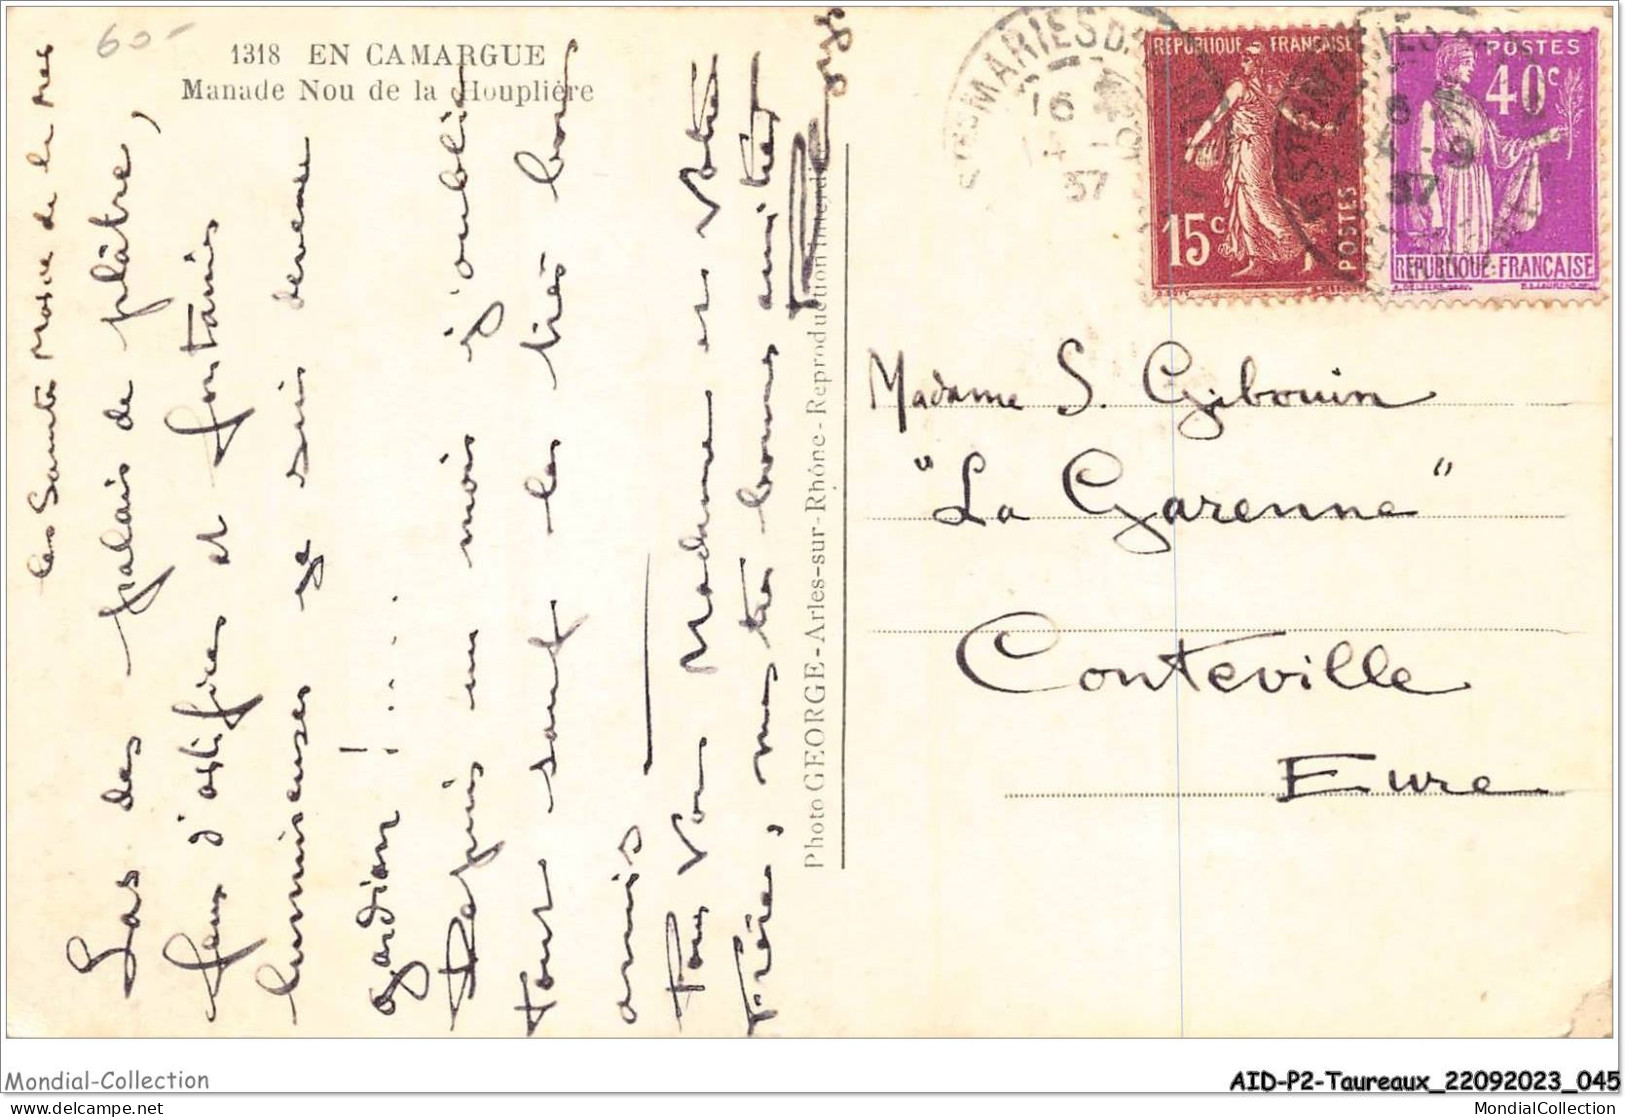 60-
1318 EN CAMARGUE
Manade Nou de la Houplière
les Saintes Maries de la Mer
Las des palais de plâtre,
feux d'artifices et fontaines
lumineuses je suis devenu
gardian !....
Depuis un mois j'oublie
tout sauf les très bons
amis
Pour vous Madame et votre
frère, mes très bonnes amitiés
Photo GEORGE - Arles-sur-Rhône - Reproduction interdite
STES MARIES D
16
37
RÉPUBLIQUE FRANÇAISE
15c
POSTES
POSTES
40c
RÉPUBLIQUE FRANÇAISE
STES MARIES
16
9
37
Madame S. Gibouin
"La Garenne"
Conteville
Eure
Mondial-Collection
AID-P2-Taureaux_22092023_045
www.mondial-collection.com
MondialCollection